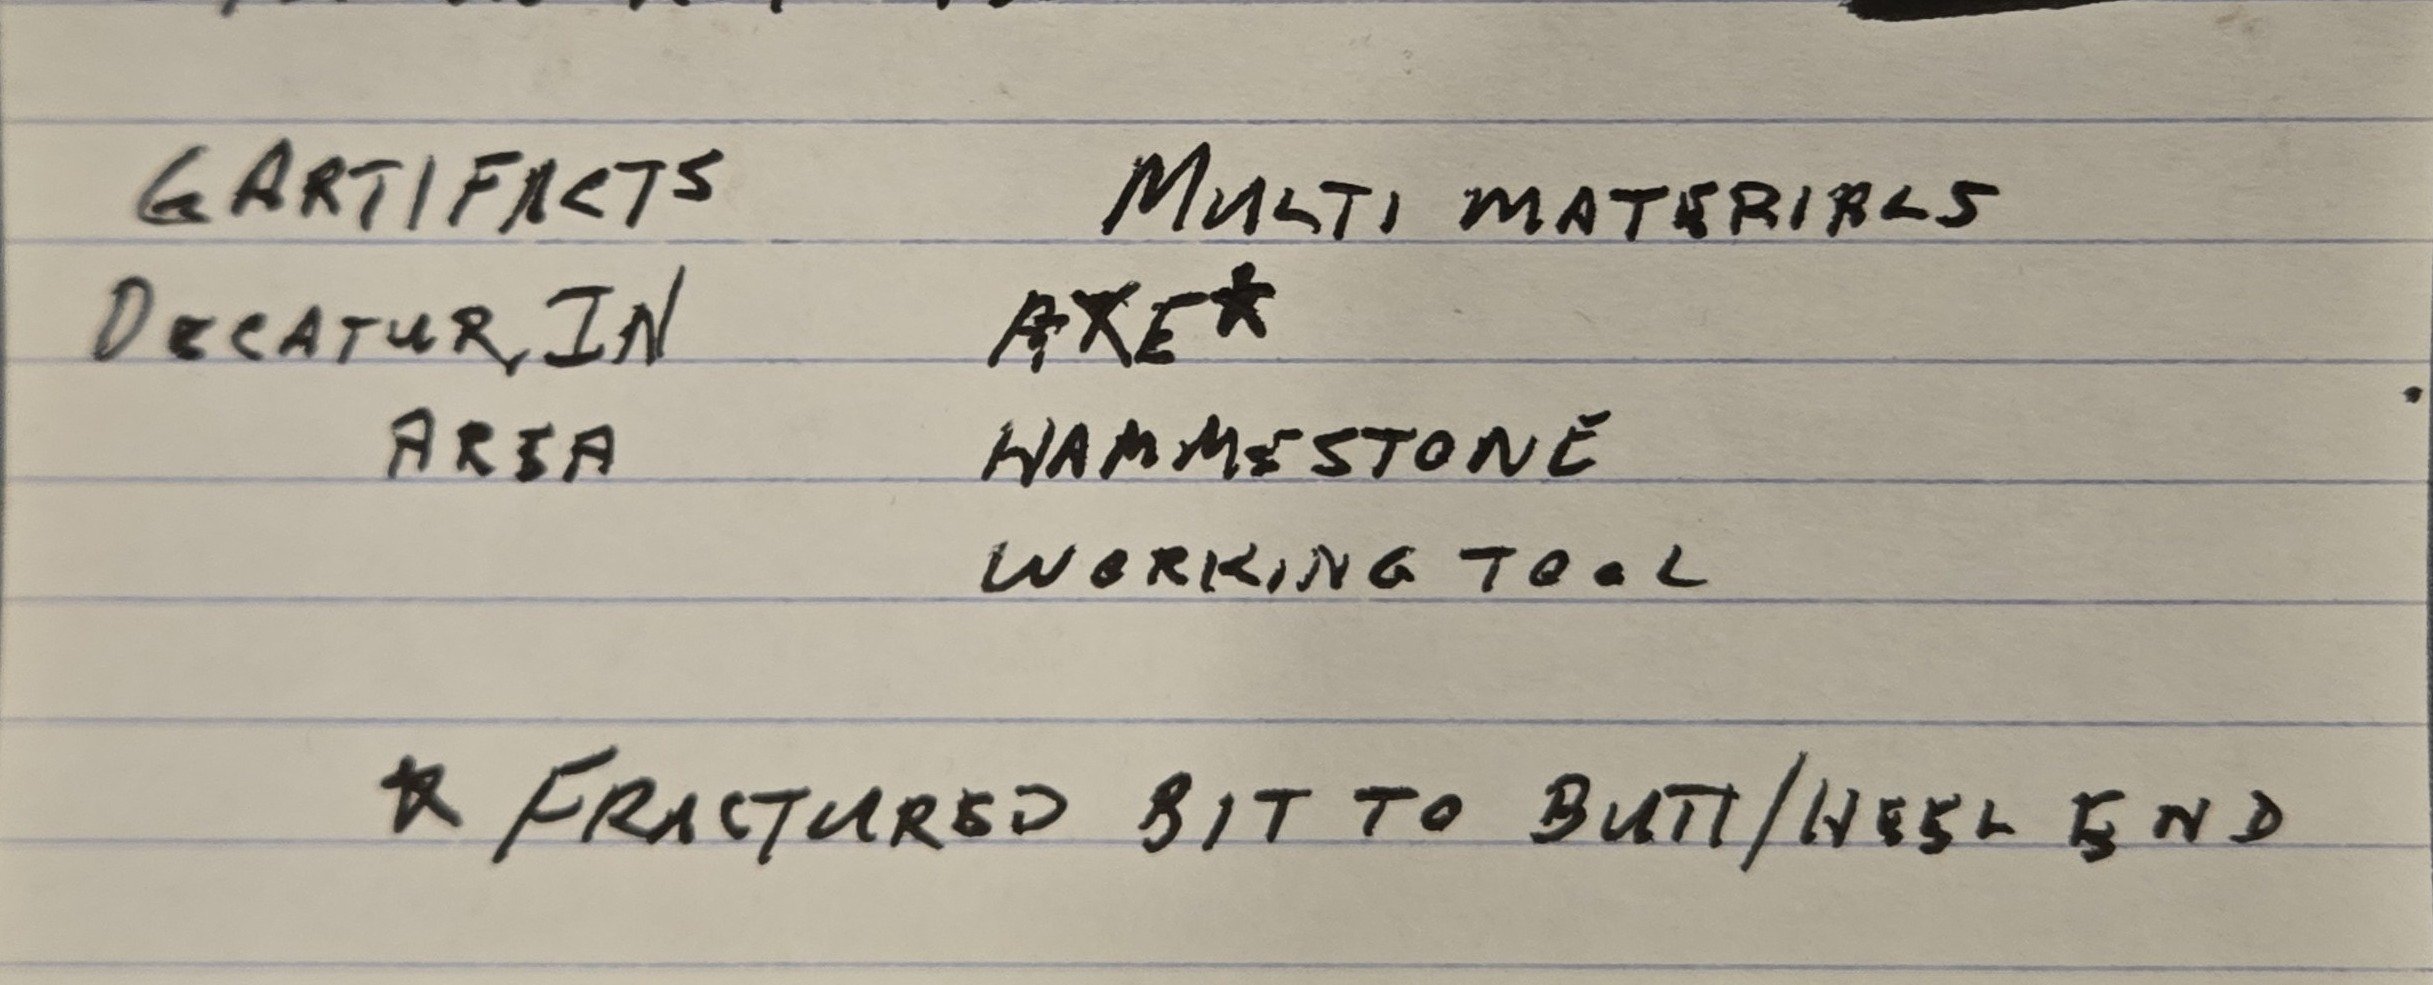 6 ARTIFACTS MULTI MATERIALS
DECATUR, IN AXE*
AREA HAMMESTONE
WORKING TOOL
* FRACTURED BIT TO BUTT/HEEL END